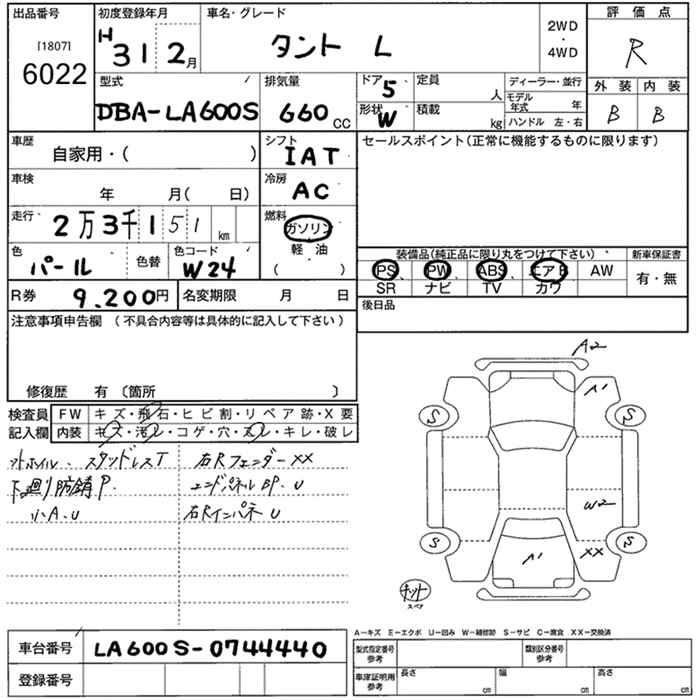 出品番号 初度登録年月 車名・グレード 評価点
[1807]
6022
H 31 2月 タント L 2WD ・ 4WD R
型式 排気量 ドア 5 定員 人 ディーラー・並行 外装 内装
DBA-LA600S 660 CC 形状 W 積載 kg モデル年式 年 B B
ハンドル 左・右
車歴 シフト セールスポイント(正常に機能するものに限ります)
自家用・( ) IAT
車検 冷房
年 月( 日) AC
走行 2万3千151 km 燃料
ガソリン
軽油
( )
色 色替 色コード 装備品(純正品に限り丸をつけて下さい) 新車保証書
パール W24 PS PW ABS エアB AW 有・無
SR ナビ TV カワ
R券 9.200円 名変期限 月 日 後日品
注意事項申告欄 (不具合内容等は具体的に記入して下さい)
修復歴 有 〔箇所 〕
検査員 FW キズ・飛石・ヒビ割・リペア跡・X要
記入欄 内装 キズ・汚レ・コゲ・穴・スレ・キレ・破レ
スタッドレスT 右Rフェンダー XX
下廻り防錆P. エンドパネルBP. U
小A.U 右Rインパネ U
A2
A1
S
S
W2
S
A1
XX
S
キット
スペア
A-キズ E-エクボ U-凹み W-補修跡 S-サビ C-腐食 XX-交換済
車台番号 LA600S-0744440 型式指定番号 参考 類別区分番号 参考
登録番号 車庫証明用 参考 長さ cm 幅 cm 高さ cm